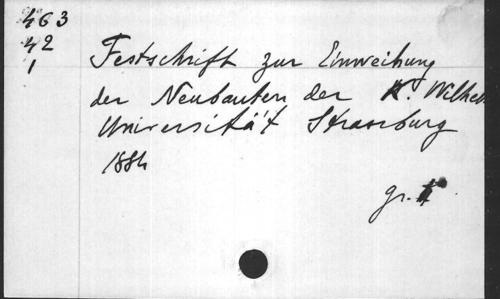 463
42
1
Festschrift zur Einweihung
der Neubauten der K. Wilhelm
Universität Strassburg
1884
gr.